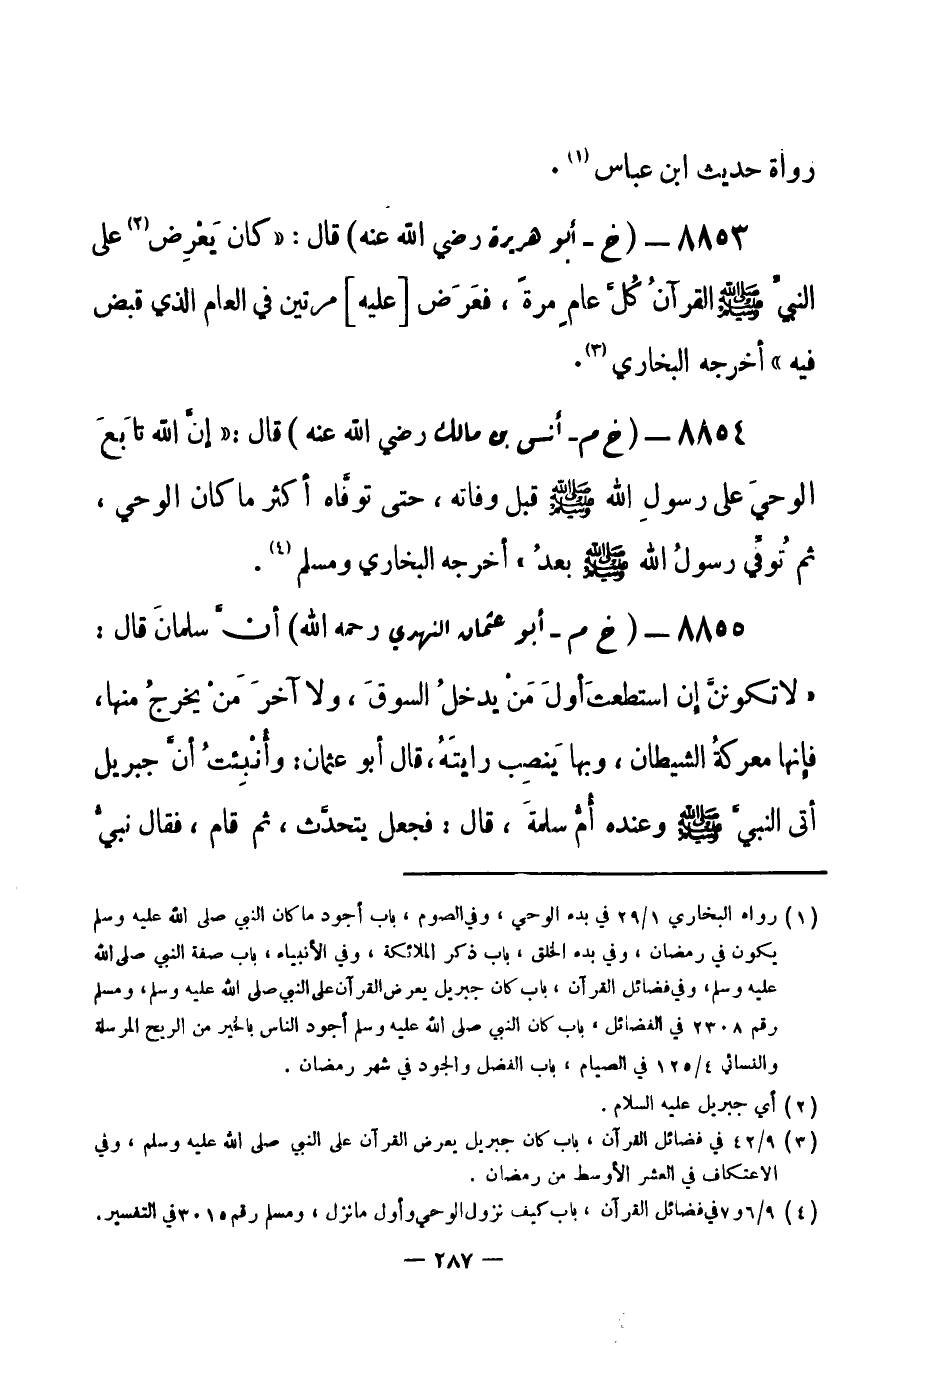 رواة حديث ابن عباس (١) .
٨٨٥٣ — ( خ - أبو هريرة رضي الله عنه ) قال : « كان يَعْرِض (٢) على
النبيِّ ﷺ القرآنُ كُلَّ عامٍ مرةً ، فعَرَض [ عليه ] مرتين في العام الذي قبض
فيه » أخرجه البخاري (٣) .
٨٨٥٤ — ( خ م - أنس بن مالك رضي الله عنه ) قال : « إنَّ الله تابَعَ
الوحيَ على رسولِ الله ﷺ قبل وفاته ، حتى توفَّاه أكثر ما كان الوحي ،
ثم تُوفِّي رسولُ الله ﷺ بعدُ » أخرجه البخاري ومسلم (٤) .
٨٨٥٥ — ( خ م - أبو عثمان النهدي رحمه الله ) أنَّ سلمانَ قال :
« لا تكوننَّ إن استطعتَ أولَ مَنْ يدخلُ السوقَ ، ولا آخرَ مَنْ يخرجُ منها ،
فإنها معركةُ الشيطان ، وبها يَنصِب رايتَهُ ، قال أبو عثمان : وأُنْبِئتُ أنَّ جبريل
أتى النبيَّ ﷺ وعنده أمُّ سلمةَ ، قال : فجعل يتحدَّث ، ثم قام ، فقال نبيُّ
(١) رواه البخاري ٢٩/١ في بدء الوحي ، وفي الصوم ، باب أجود ما كان النبي صلى الله عليه وسلم
يكون في رمضان ، وفي بدء الخلق ، باب ذكر الملائكة ، وفي الأنبياء ، باب صفة النبي صلى الله
عليه وسلم ، وفي فضائل القرآن ، باب كان جبريل يعرض القرآن على النبي صلى الله عليه وسلم ، ومسلم
رقم ٢٣٠٨ في الفضائل ، باب كان النبي صلى الله عليه وسلم أجود الناس بالخير من الريح المرسلة
والنسائي ١٢٥/٤ في الصيام ، باب الفضل والجود في شهر رمضان .
(٢) أي جبريل عليه السلام .
(٣) ٤٢/٩ في فضائل القرآن ، باب كان جبريل يعرض القرآن على النبي صلى الله عليه وسلم ، وفي
الاعتكاف في العشر الأوسط من رمضان .
(٤) ٦/٩ و ٧ في فضائل القرآن ، باب كيف نزول الوحي وأول ما نزل ، ومسلم رقم ٣٠١٥ في التفسير .
— ٢٨٧ —